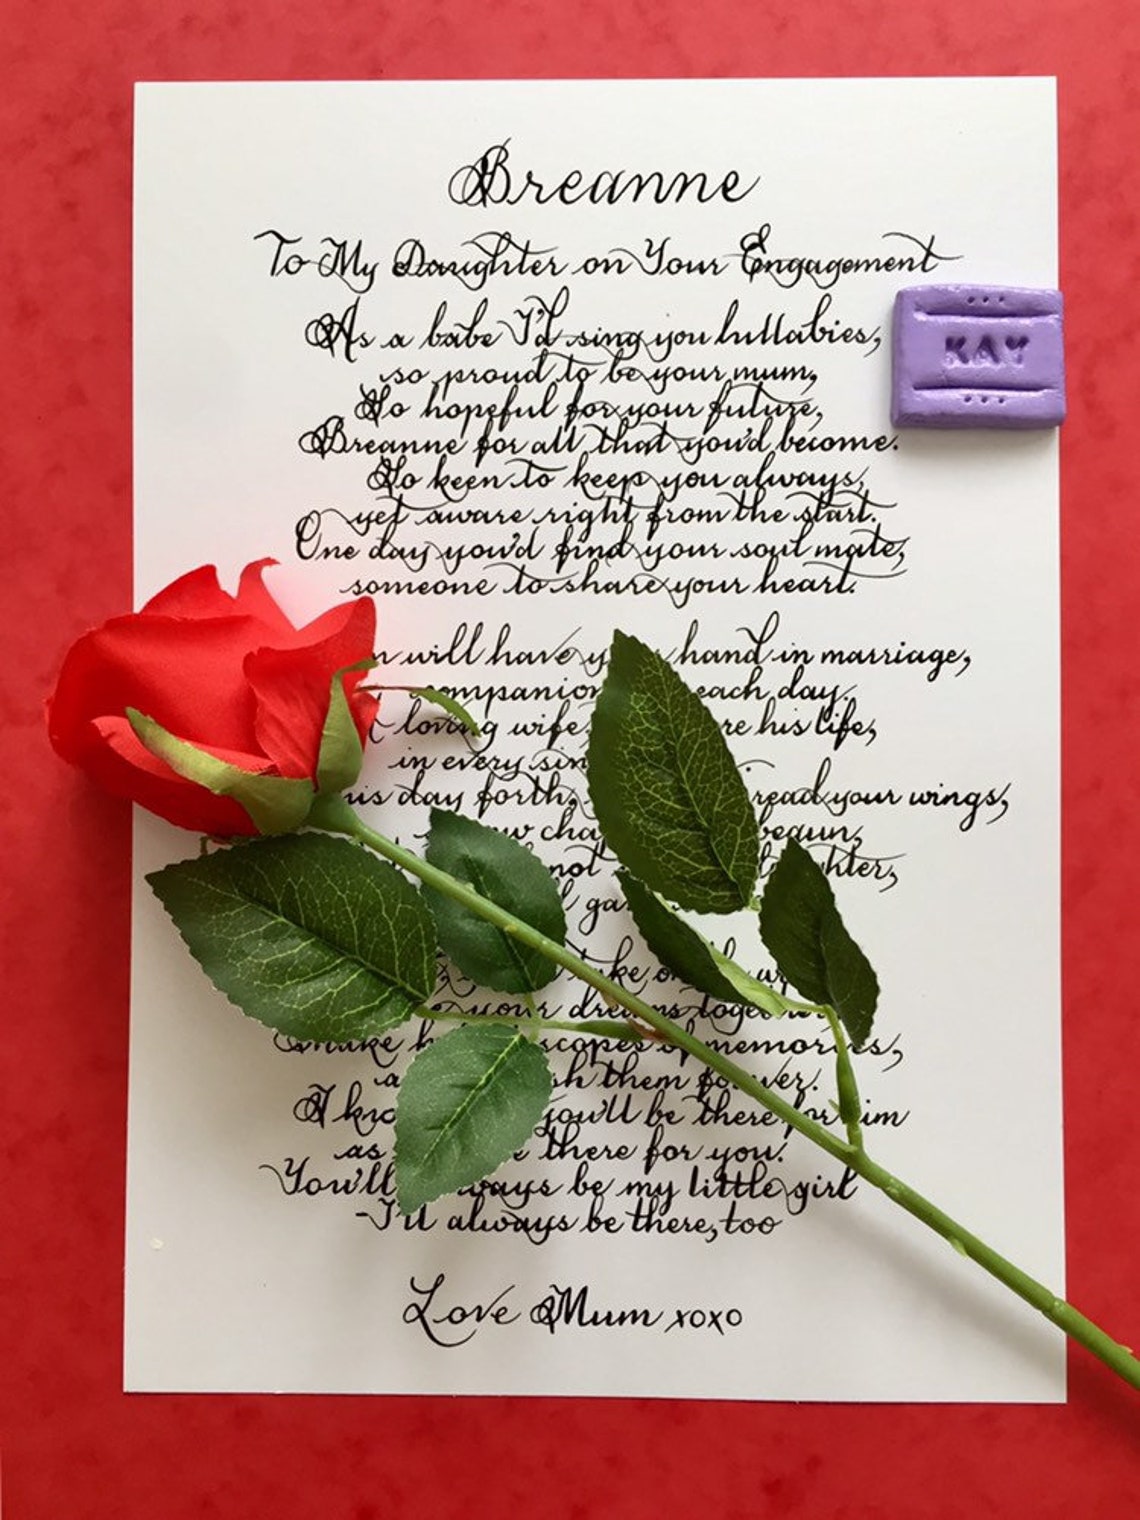 Breanne
To My Daughter on Your Engagement
As a babe I'd sing you lullabies,
KAY
so proud to be your mum,
So hopeful for your future,
Breanne for all that you'd become.
So keen to keep you always,
yet aware right from the start.
One day you'd find your soul mate,
someone to share your heart.
will have hand in marriage,
each day.
loving wife his life,
in every
day forth, your wings,
begun,
not
take
your dreams
make of memories,
them forever.
I you'll be there for him
as there for you.
You'll always be my little girl
-I'll always be there, too
Love Mum xoxo